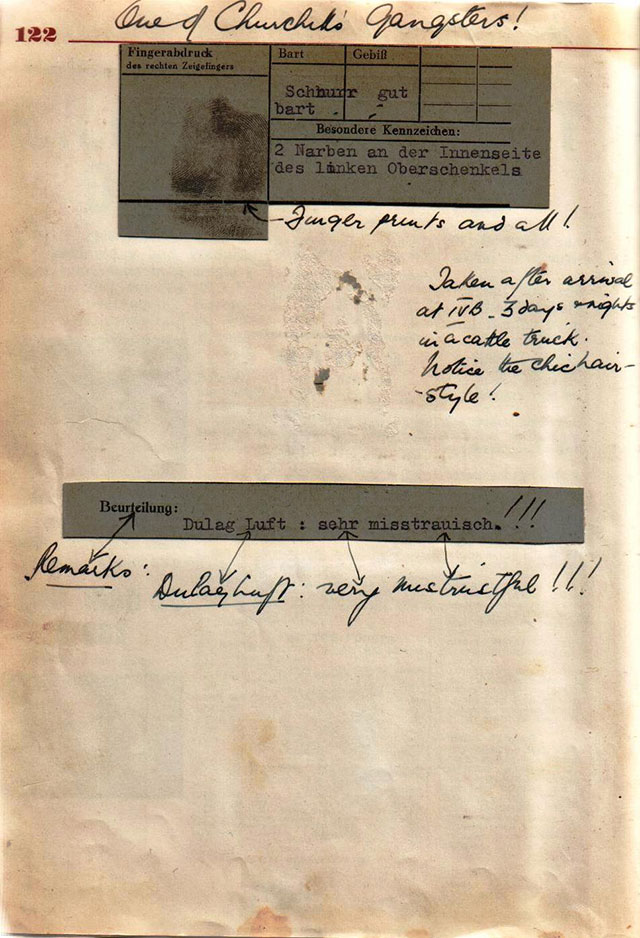 122
One of Churchill's gangsters!
Fingerabdruck
des rechten Zeigefingers
Bart
Gebiß
Schnurr
bart .
gut
Besondere Kennzeichen:
2 Narben an der Innenseite
des linken Oberschenkels
Finger prints and all!
Taken after arrival
at IVB - 3 days & nights
in a cattle truck.
Notice the chic hair-
-style!
Beurteilung:
Dulag Luft : sehr misstrauisch.!!!
Remarks:
Dulag Luft: very mistrustful!!!